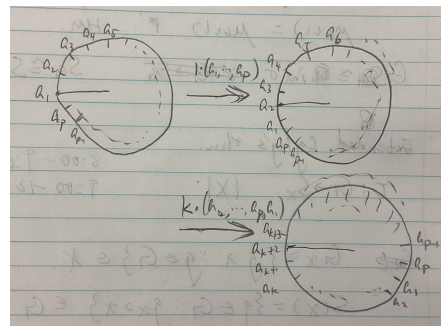 a₄ a₅
a₃
a₂
a₁
aₚ
aₚ₋₁
1·(a₁,…,aₚ)
a₅ a₆
a₄
a₃
a₂
a₁
aₚ
aₚ₋₁
k·(a₂,…,aₚ,a₁)
aₖ₊₃
aₖ₊₂
aₖ₊₁
aₖ
aₚ₋₁
aₚ
a₁
a₂